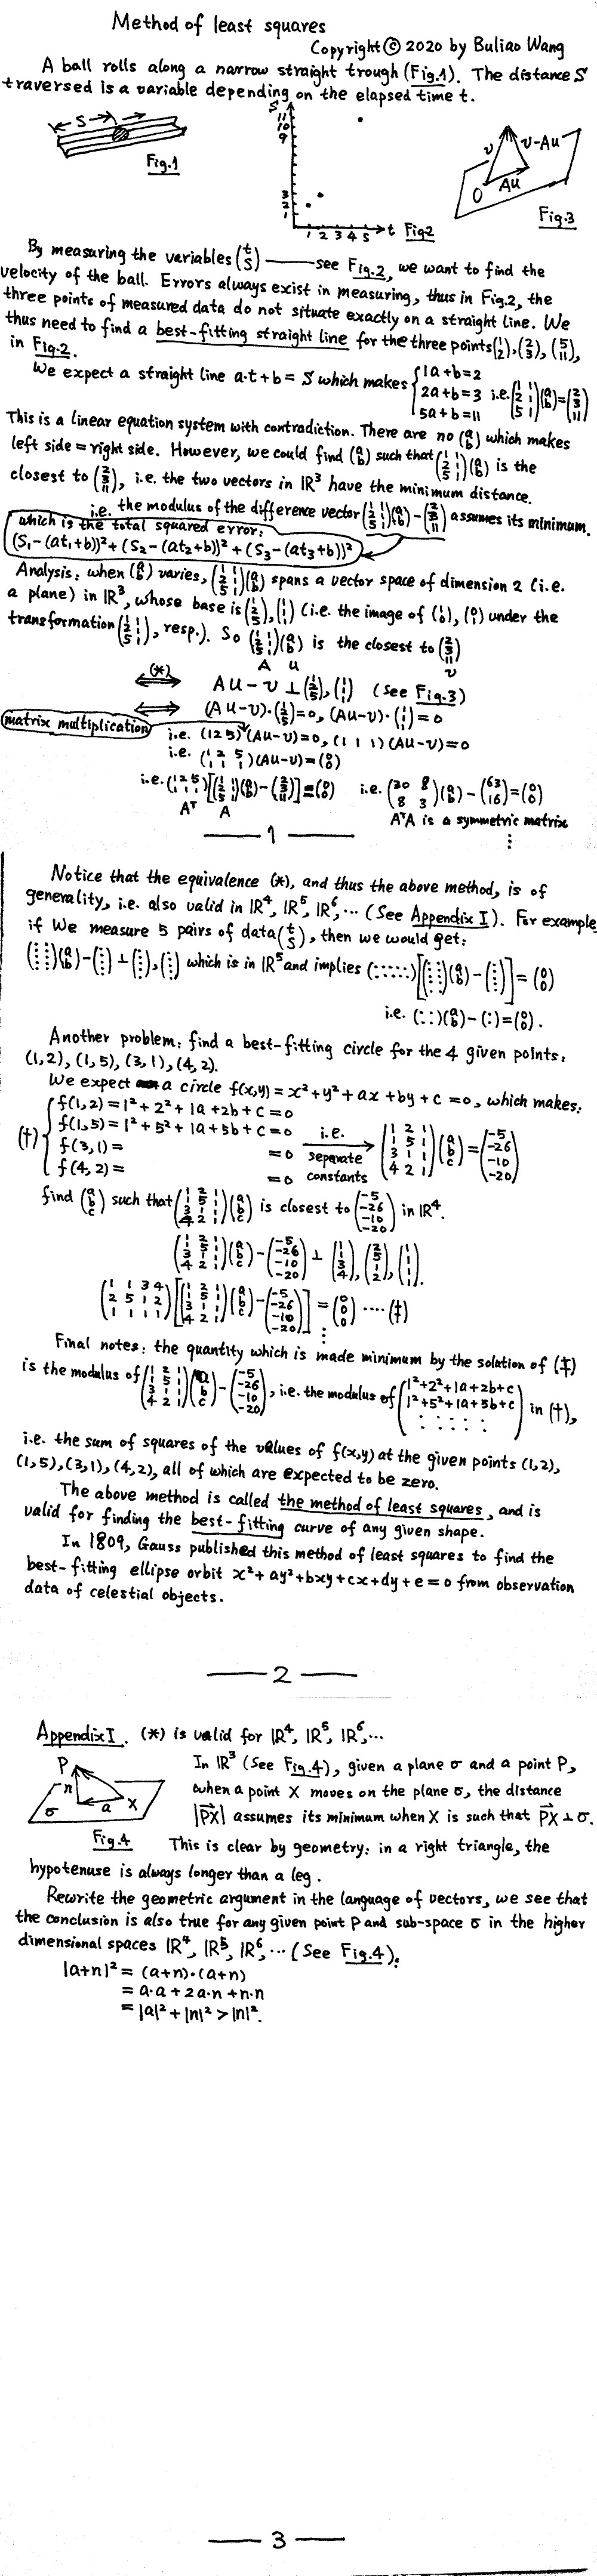 Method of least squares
Copyright © 2020 by Buliao Wang
A ball rolls along a narrow straight trough (Fig.1). The distance S
traversed is a variable depending on the elapsed time t.
S
Fig.1
S
11
10
9
3
2
1
1 2 3 4 5 t Fig.2
v v-Au
O Au
Fig.3
By measuring the variables (t S) —— see Fig.2, we want to find the
velocity of the ball. Errors always exist in measuring, thus in Fig.2, the
three points of measured data do not situate exactly on a straight line. We
thus need to find a best-fitting straight line for the three points (1 2), (2 3), (5 11),
in Fig.2.
We expect a straight line a·t+b = S which makes { 1a+b=2
2a+b=3 i.e. (1 1; 2 1; 5 1)(a b)=(2 3 11)
5a+b=11
This is a linear equation system with contradiction. There are no (a b) which makes
left side = right side. However, we could find (a b) such that (1 1; 2 1; 5 1)(a b) is the
closest to (2 3 11), i.e. the two vectors in ℝ³ have the minimum distance.
i.e. the modulus of the difference vector (1 1; 2 1; 5 1)(a b) − (2 3 11) assumes its minimum.
which is the total squared error:
(S₁-(at₁+b))² + (S₂-(at₂+b))² + (S₃-(at₃+b))²
Analysis: when (a b) varies, (1 1; 2 1; 5 1)(a b) spans a vector space of dimension 2 (i.e.
a plane) in ℝ³, whose base is (1 2 5), (1 1 1) (i.e. the image of (1 0), (0 1) under the
transformation (1 1; 2 1; 5 1), resp.). So (1 1; 2 1; 5 1)(a b) is the closest to (2 3 11)
A u v
(*) ⟺ Au − v ⊥ (1 2 5), (1 1 1) (see Fig.3)
⟺ (Au−v)·(1 2 5)=0, (Au−v)·(1 1 1)=0
matrix multiplication
i.e. (1 2 5)(Au−v)=0, (1 1 1)(Au−v)=0
i.e. (1 2 5; 1 1 1)(Au−v)=(0 0)
i.e. (1 2 5; 1 1 1)[(1 1; 2 1; 5 1)(a b) − (2 3 11)]=(0 0) i.e. (30 8; 8 3)(a b) − (63 16)=(0 0)
Aᵀ A AᵀA is a symmetric matrix
⋮
— 1 —
Notice that the equivalence (*), and thus the above method, is of
generality, i.e. also valid in ℝ⁴, ℝ⁵, ℝ⁶, ··· (See Appendix I). For example
if We measure 5 pairs of data (t S), then we would get:
(⋮ ⋮)(a b) − (⋮) ⊥ (⋮), (⋮) which is in ℝ⁵ and implies (:::::)[(⋮ ⋮)(a b) − (⋮)] = (0 0)
i.e. (: :)(a b) − (:) = (0 0).
Another problem: find a best-fitting circle for the 4 given points:
(1,2), (1,5), (3,1), (4,2).
We expect a circle f(x,y) = x²+y²+ax+by+c = 0, which makes:
(†) { f(1,2) = 1²+2²+1a+2b+c = 0
f(1,5) = 1²+5²+1a+5b+c = 0
f(3,1) = =0
f(4,2) = =0
i.e. separate constants → (1 2 1; 1 5 1; 3 1 1; 4 2 1)(a b c) = (-5 -26 -10 -20)
find (a b c) such that (1 2 1; 1 5 1; 3 1 1; 4 2 1)(a b c) is closest to (-5 -26 -10 -20) in ℝ⁴.
(1 2 1; 1 5 1; 3 1 1; 4 2 1)(a b c) − (-5 -26 -10 -20) ⊥ (1 1 3 4), (2 5 1 2), (1 1 1 1).
(1 1 3 4; 2 5 1 2; 1 1 1 1)[(1 2 1; 1 5 1; 3 1 1; 4 2 1)(a b c) − (-5 -26 -10 -20)] = (0 0 0) ···· (‡)
⋮
Final notes: the quantity which is made minimum by the solution of (‡)
is the modulus of (1 2 1; 1 5 1; 3 1 1; 4 2 1)(a b c) − (-5 -26 -10 -20), i.e. the modulus of (1²+2²+1a+2b+c; 1²+5²+1a+5b+c; ·····) in (†),
i.e. the sum of squares of the values of f(x,y) at the given points (1,2),
(1,5), (3,1), (4,2), all of which are expected to be zero.
The above method is called the method of least squares, and is
valid for finding the best-fitting curve of any given shape.
In 1809, Gauss published this method of least squares to find the
best-fitting ellipse orbit x²+ay²+bxy+cx+dy+e=0 from observation
data of celestial objects.
— 2 —
Appendix I. (*) is valid for ℝ⁴, ℝ⁵, ℝ⁶, ···
P
n
σ a X
Fig.4
In ℝ³ (See Fig.4), given a plane σ and a point P,
when a point X moves on the plane σ, the distance
|PX| assumes its minimum when X is such that PX ⊥ σ.
This is clear by geometry: in a right triangle, the
hypotenuse is always longer than a leg.
Rewrite the geometric argument in the language of vectors, we see that
the conclusion is also true for any given point P and sub-space σ in the higher
dimensional spaces ℝ⁴, ℝ⁵, ℝ⁶, ··· (See Fig.4).
|a+n|² = (a+n)·(a+n)
= a·a + 2a·n + n·n
= |a|² + |n|² > |n|².
— 3 —